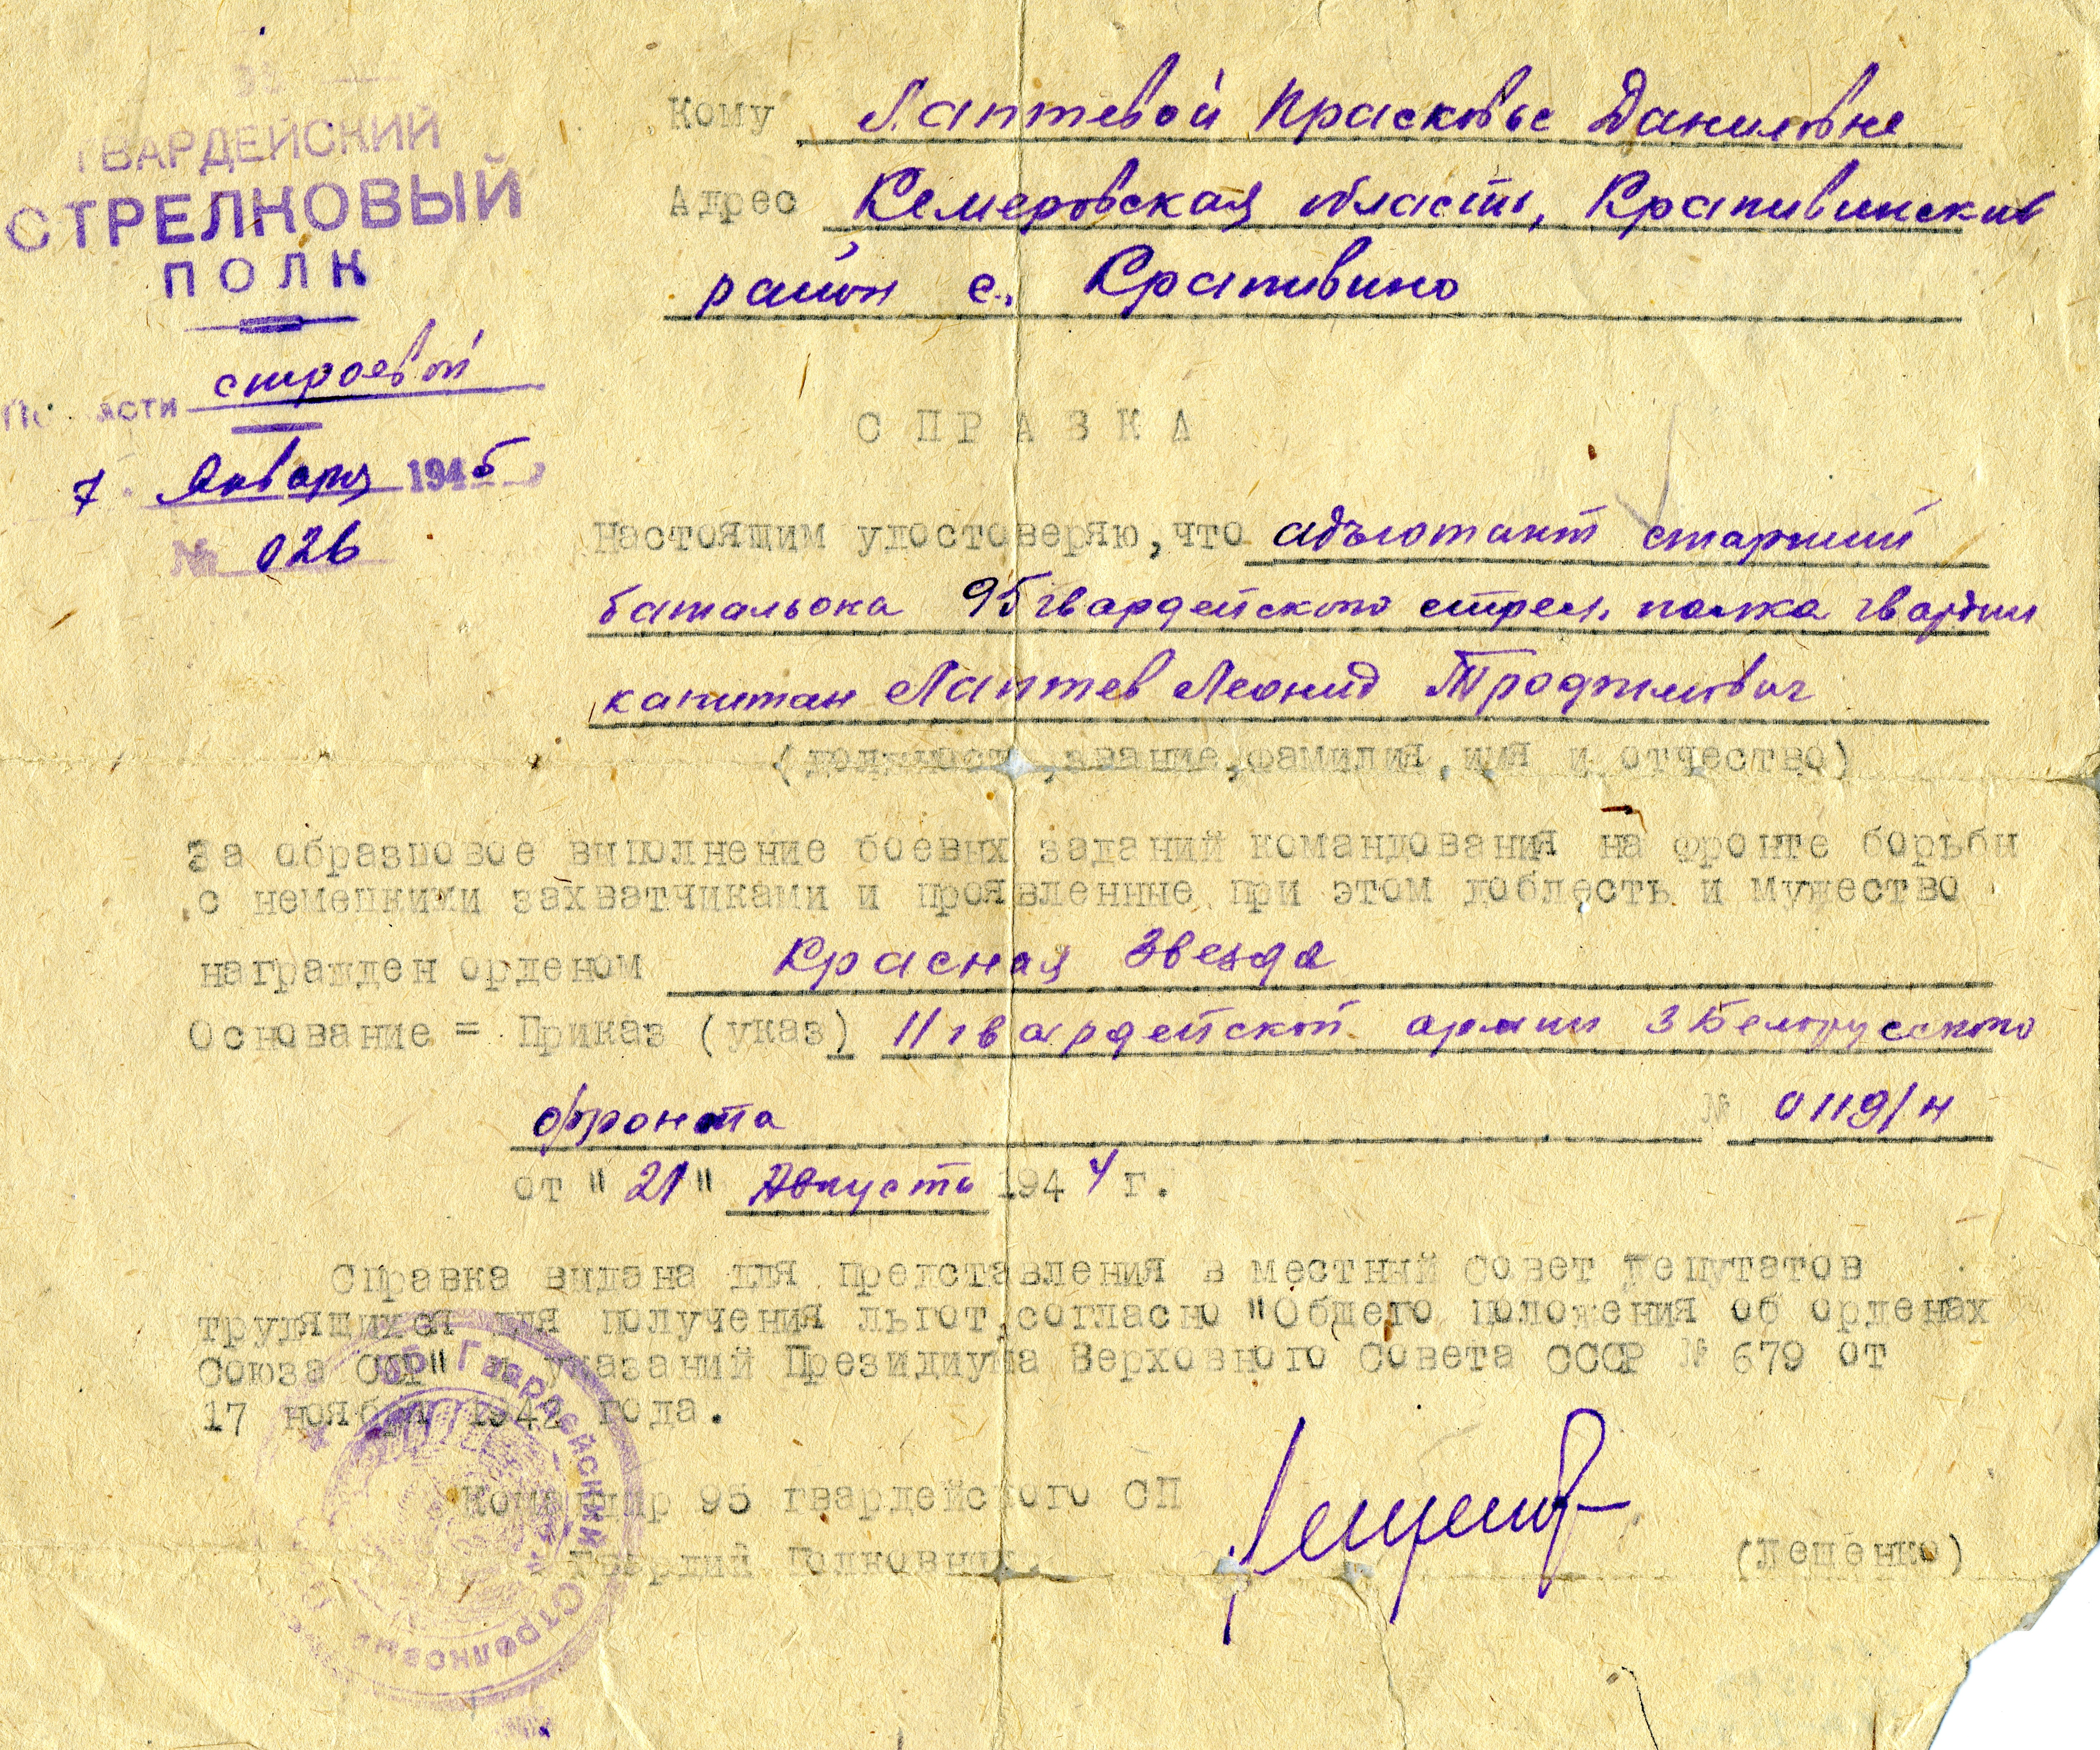 ГВАРДЕЙСКИЙ
СТРЕЛКОВЫЙ
ПОЛК
строевой
7 Января 1945
№ 026
Кому Лаптевой Прасковье Даниловне
Адрес Кемеровская область, Крапивинский
район с. Крапивино
СПРАВКА
Настоящим удостоверяю, что адъютант старший
батальона 95 гвардейского стрел. полка гвардии
капитан Лаптев Леонид Трофимович
(должность, звание, фамилия, имя и отчество)
За образцовое выполнение боевых заданий командования на фронте борьбы
с немецкими захватчиками и проявленные при этом доблесть и мужество
награжден орденом Красная Звезда
Основание = Приказ (указ) 11 гвардейской армии 3 Белорусского
фронта № 0119/н
от "21" Августь 1944 г.
Справка выдана для представления в местный Совет депутатов
трудящихся для получения льгот, согласно "Общего положения об орденах
Союза ССР" и указаний Президиума Верховного Совета СССР № 679 от
17 ноября 1942 года.
Командир 95 гвардейского СП
Гвардий полковник (Лещенко)
Гвардейский Стрелковый